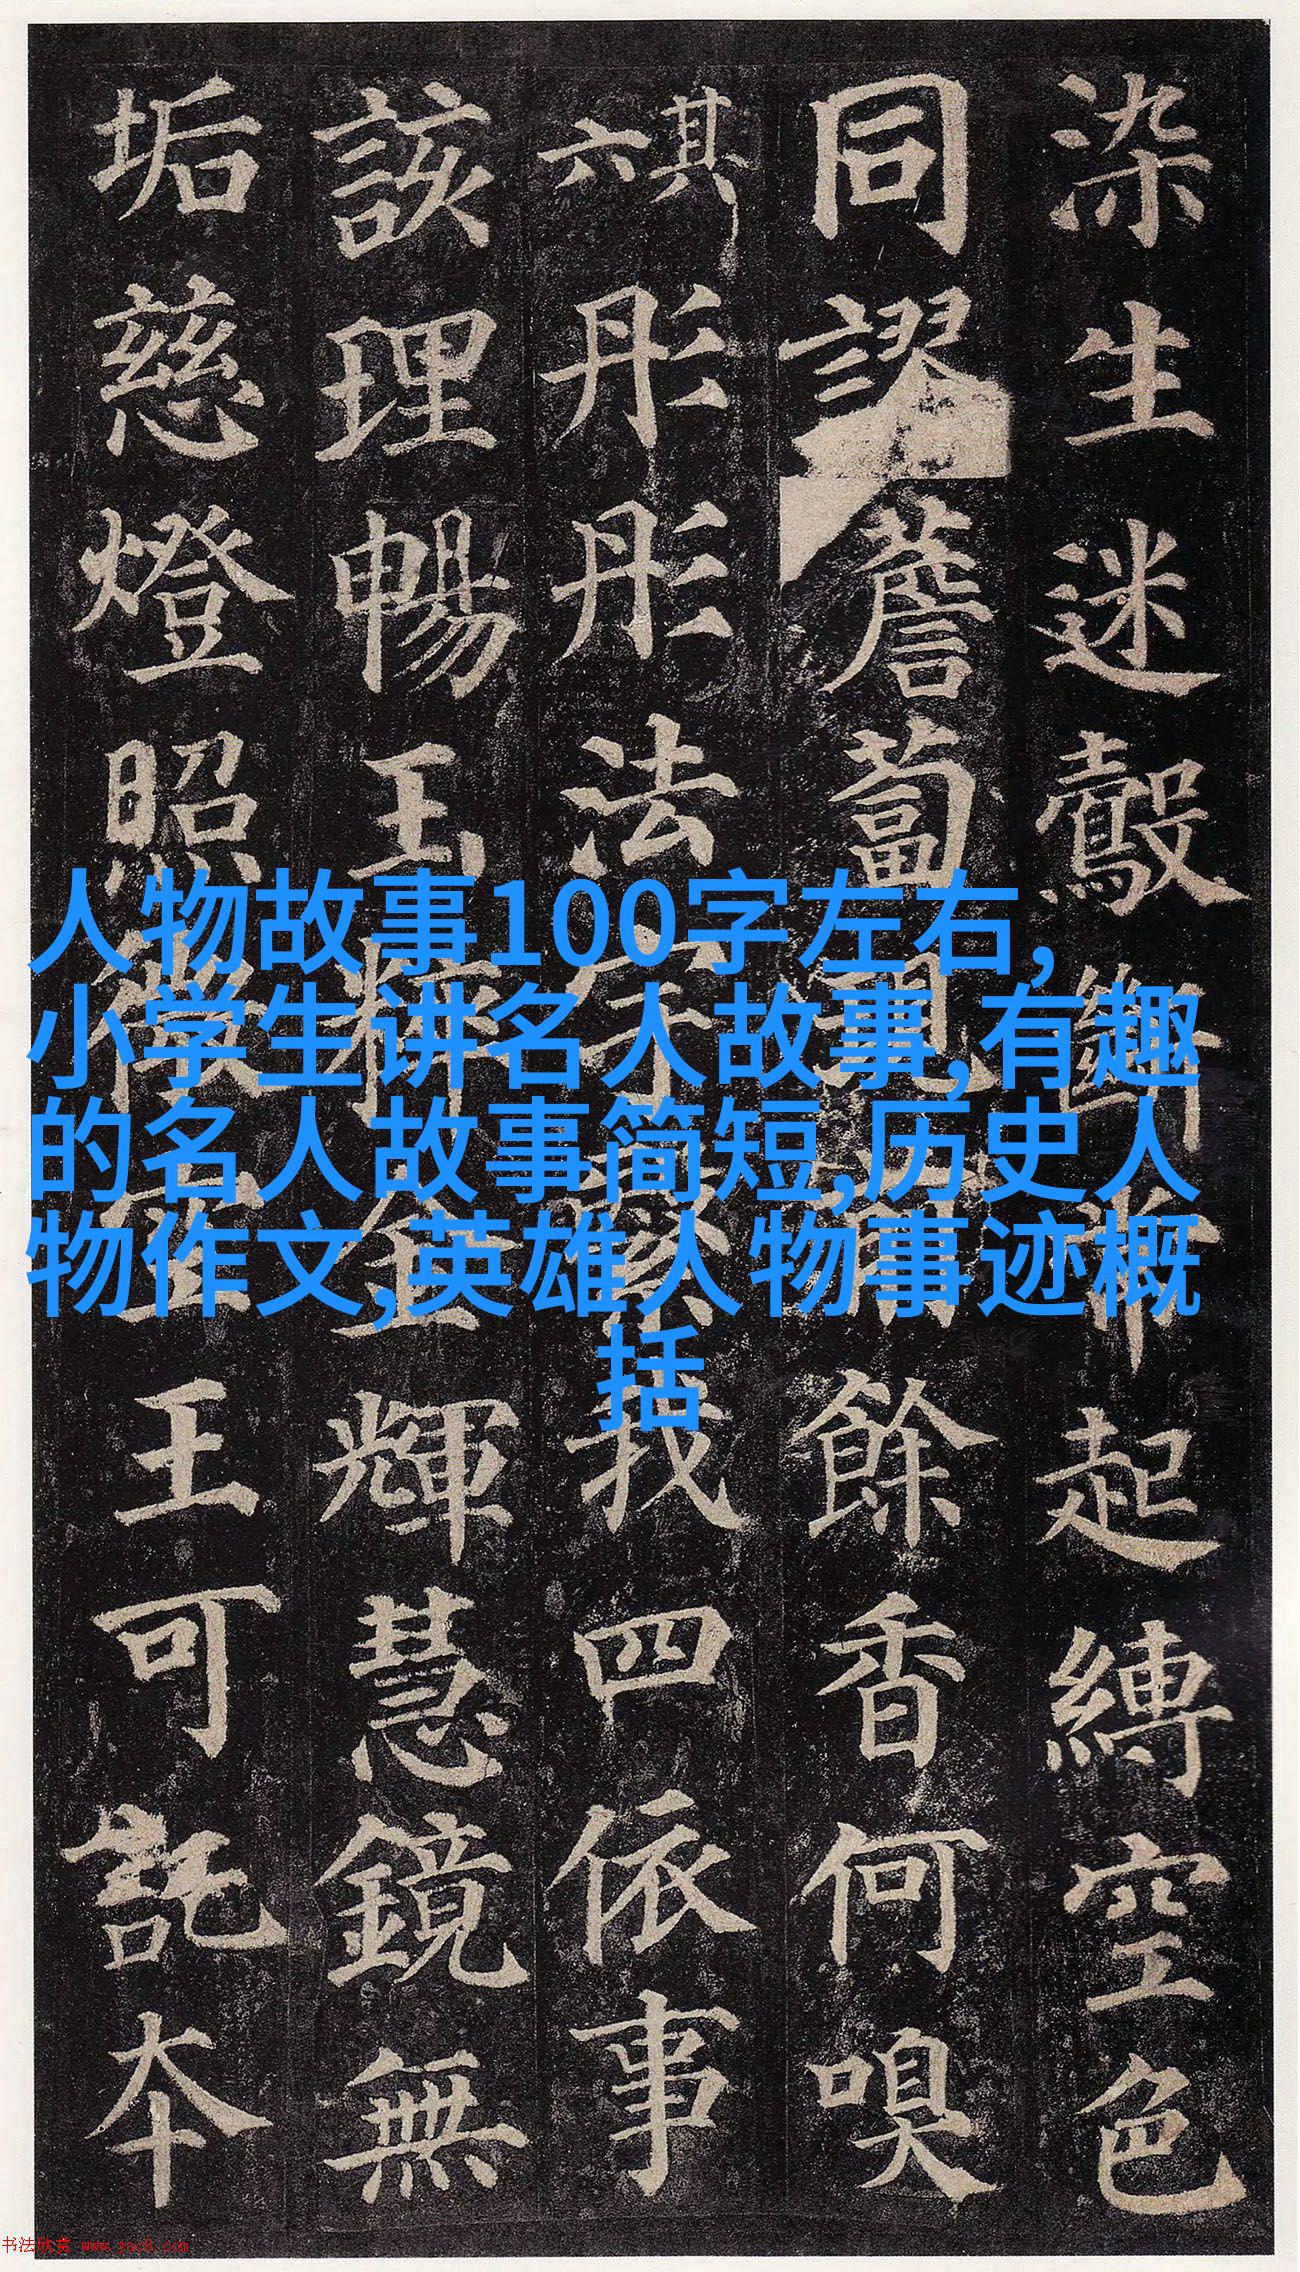 染生迷鷇斷常起縛空色
同謬薝蔔聞餘香何嗅
其六
彤彤法宇繄我四依事
該理暢玉粹金輝慧鏡無
垢慈燈照微空王可託本
人物故事100字左右,
小学生讲名人故事,有趣
的名人故事简短,历史人
物作文,英雄人物事迹概
括
书法欣赏 www.yac8.com